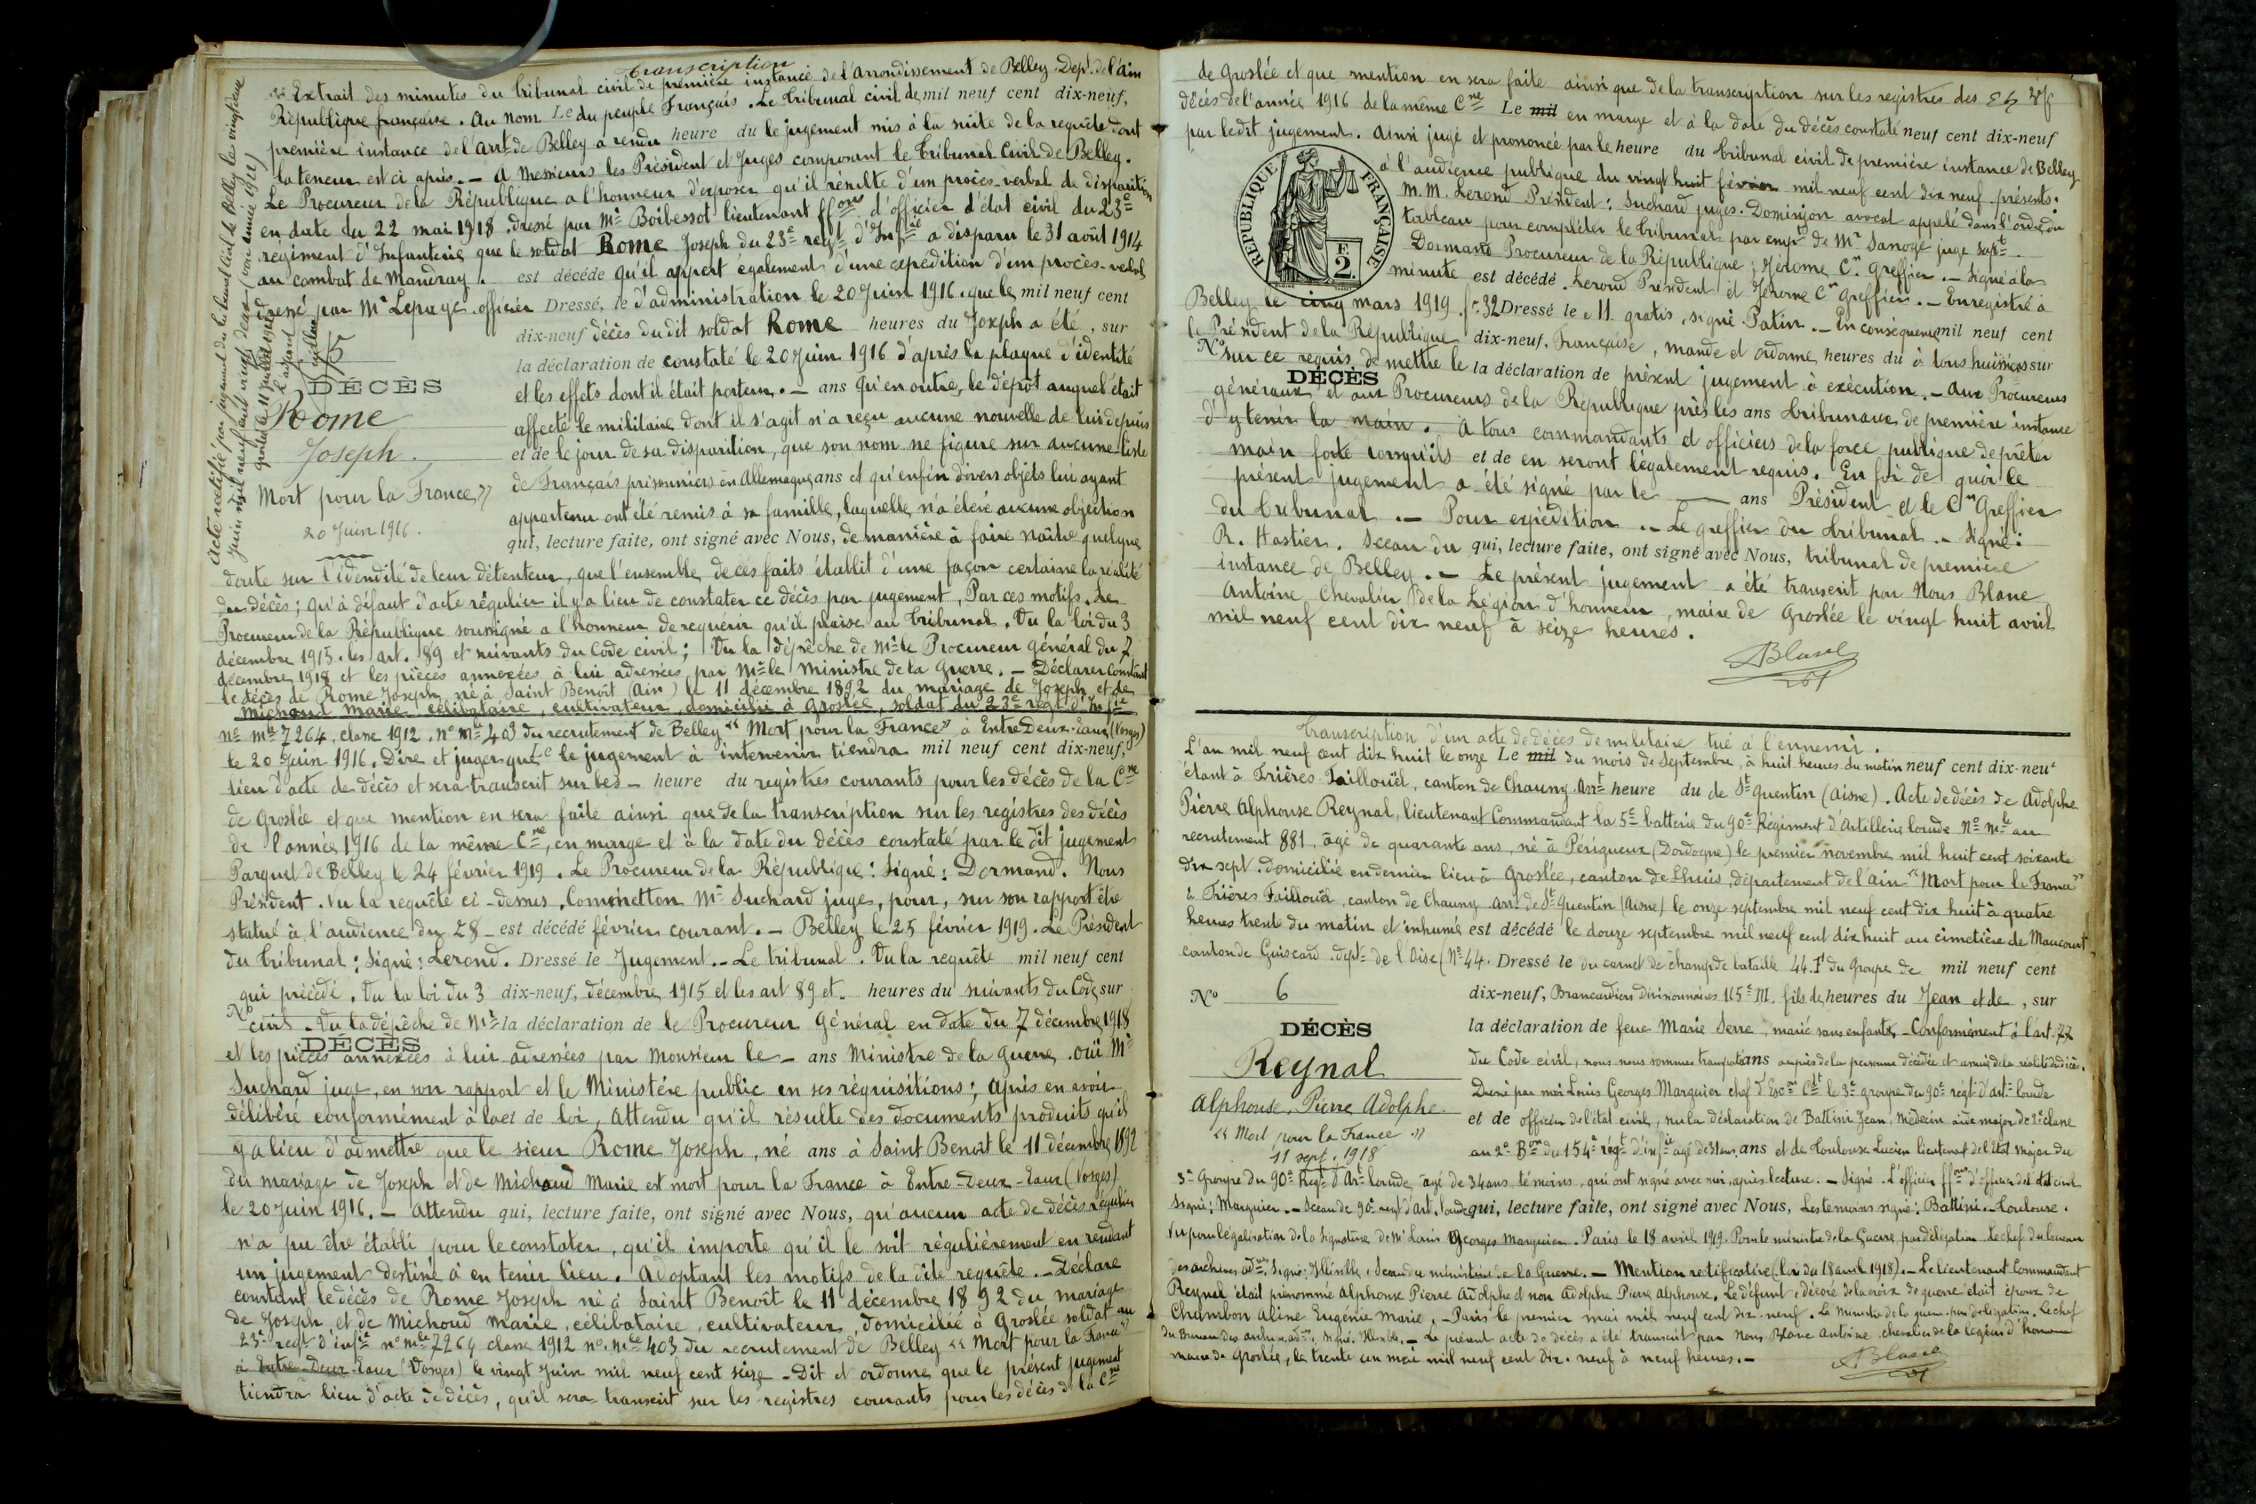 transcription
Extrait des minutes du tribunal civil de première instance de l'arrondissement de Belley. Dept. de l'Ain
République française. Au nom Le du peuple Français. Le tribunal civil de mil neuf cent dix-neuf,
première instance de l'arrt de Belley a rendu heure du le jugement mis à la suite de la requête dont
la teneur est ci après. — A Messieurs les Président et Juges composant le tribunal civil de Belley.
Le Procureur de la République a l'honneur d'exposer qu'il résulte d'un procès-verbal de disparition
en date du 22 mai 1918. dressé par Mr Boibessot lieutenant ffons d'officier d'état civil du 23e
régiment d'Infanterie que le soldat Rome Joseph du 23e regt d'Infie a disparu le 31 août 1914
au combat de Mandray. est décédé qu'il appert également d'une expédition d'un procès-verbal
dressé par Mr Lepage officier Dressé, le d'administration le 20 Juin 1916. que le mil neuf cent
dix-neuf décès du dit soldat Rome heures du Joseph a été, sur
la déclaration de constaté le 20 Juin 1916 d'après la plaque d'identité
et les effets dont il était porteur. — ans qu'en outre, le dépôt auquel était
affecté le militaire dont il s'agit n'a reçu aucune nouvelle de lui depuis
et de le jour de sa disparition, que son nom ne figure sur aucune liste
de Français prisonniers en Allemagne ans et qu'enfin divers objets lui ayant
appartenu ont été remis à sa famille, laquelle n'a élevé aucune objection
qui, lecture faite, ont signé avec Nous, de manière à faire naître quelque
5
DÉCÈS
Rome
Joseph.
Mort pour la France »
20 Juin 1916.
Acte rectifié par jugement du tribunal civil de Belley le vingt
juin mil neuf cent vingt deux (voir année 1922)
Groslée le 11 Juillet
doute sur l'idendité de leur détenteur, que l'ensemble de ces faits établit d'une façon certaine la réalité
du décès; qu'à défaut d'acte régulier il y a lieu de constater ce décès par jugement, Par ces motifs. Le
Procureur de la République soussigné a l'honneur de requérir qu'il plaise au tribunal. Vu la loi du 3
décembre 1915. les art. 89 et suivants du Code civil; Vu la dépêche de Mr le Procureur général du 7
décembre 1918 et les pièces annexées à lui adressées par Mr le Ministre de la Guerre. — Déclarer constant
le décès de Rome Joseph né à Saint Benoît (Ain) le 11 décembre 1892 du mariage de Joseph et de
Michoud Marie célibataire, cultivateur, domicilié à Groslée, soldat du 23e régt d'Infie
No Mle 7264. classe 1912. No Mle 403 du recrutement de Belley « Mort pour la France » à Entre-Deux-Eaux (Vosges)
le 20 Juin 1916. Dire et juger que Le le jugement à intervenir tiendra mil neuf cent dix-neuf,
lieu d'acte de décès et sera transcrit sur les — heure du registres courants pour les décès de la Cne
de Groslée et que mention en sera faite ainsi que de la transcription sur les registres des décès
de l'année 1916 de la même Cne, en marge et à la date du décès constaté par le dit jugement
Parquet de Belley le 24 février 1919. Le Procureur de la République: Signé: Dormand. Nous
Président. Vu la requête ci-dessus. Commettons Mr Suchard juge, pour, sur son rapport être
statué à l'audience du 28 — est décédé février courant. — Belley le 25 février 1919. Le Président
du tribunal: Signé: Lerond. Dressé le Jugement. — Le tribunal. Vu la requête mil neuf cent
qui précède. Vu la loi du 3 dix-neuf, décembre 1915 et les art 89 et — heures du suivants du Code sur
No civil — Vu la dépêche de Mr la déclaration de le Procureur Général en date du 7 décembre 1918
DÉCÈS
et les pièces annexées à lui adressées par Monsieur le — ans Ministre de la Guerre. ouï Mr
Suchard juge, en son rapport et le Ministère public en ses réquisitions; Après en avoir
délibéré conformément à la et de loi, Attendu qu'il résulte des documents produits qu'il
y a lieu d'admettre que le sieur Rome Joseph, né ans à Saint Benoît le 11 décembre 1892
du mariage de Joseph et de Michoud Marie est mort pour la France à Entre-Deux-Eaux (Vosges)
le 20 Juin 1916. — Attendu qui, lecture faite, ont signé avec Nous, qu'aucun acte de décès régulier
n'a pu être établi pour le constater, qu'il importe qu'il le soit régulièrement en rendant
un jugement destiné à en tenir lieu. Adoptant les motifs de la dite requête. — Déclare
constant le décès de Rome Joseph né à Saint Benoît le 11 décembre 1892 du mariage
de Joseph et de Michoud Marie, célibataire, cultivateur, domicilié à Groslée soldat au
23e regt d'infie no mle 7264 classe 1912 no. Mle 403 du recrutement de Belley « Mort pour la France »
à Entre-Deux-Eaux (Vosges) le vingt Juin mil neuf cent seize — Dit et ordonne que le présent jugement
tiendra lieu d'acte de décès, qu'il sera transcrit sur les registres courants pour les décès de la Cne
de Groslée et que mention en sera faite ainsi que de la transcription sur les registres des
décès de l'année 1916 de la même Cne Le mil en marge et à la date du décès constaté neuf cent dix-neuf
par le dit jugement. Ainsi jugé et prononcé par le heure du tribunal civil de première instance de Belley
à l'audience publique du vingt huit février mil neuf cent dix neuf. présents.
M.M. Lerond Président: Suchard juges. Dominjon avocat appelé dans l'ordre du
tableau pour compléter le tribunal par empt de Mr Sanoge juge supt.
Dormand Procureur de la République; Jérome Cis Greffier. — Signé à la
minute est décédé. Lerond Président et Jérome Cis Greffier. — Enregistré à
RÉPUBLIQUE FRANÇAISE
F.
2.
Belley le cinq mars 1919. fo 32 Dressé le c 11. gratis, signé Patin. — En conséquence mil neuf cent
le Président de la République dix-neuf, Française, mande et ordonne heures du à tous huissiers sur
No sur ce requis de mettre le la déclaration de présent jugement à exécution. — Aux Procureurs
DÉCÈS
généraux et aux Procureurs de la République près les ans tribunaux de première instance
d'y tenir la main. A tous commandants et officiers de la force publique de prêter
main forte lorsqu'ils et de en seront légalement requis. En foi de quoi le
présent jugement a été signé par le — ans Président et le Cis Greffier
du tribunal. — Pour expédition. — Le greffier du tribunal. — Signé:
R. Hastier. Sceau du qui, lecture faite, ont signé avec Nous, tribunal de première
instance de Belley. — Le présent jugement a été transcrit par Nous Blanc
Antoine, Chevalier de la Légion d'honneur, maire de Groslée le vingt huit avril
mil neuf cent dix neuf à seize heures.
ABlanc
Transcription d'un acte de décès de militaire tué à l'ennemi.
L'an mil neuf cent dix huit le onze Le mil du mois de Septembre, à huit heures du matin neuf cent dix-neuf
étant à Frières Faillouël, canton de Chauny Arrt heure du de St Quentin (Aisne). Acte de décès de Adolphe
Pierre Alphonse Reynal, lieutenant Commandant la 5e batterie du 90e Régiment d'Artillerie lourde No Mle au
recrutement 881, âgé de quarante ans, né à Périgueux (Dordogne) le premier novembre mil huit cent soixante
dix sept. domicilié en dernier lieu à Groslée, canton de Lhuis, département de l'Ain « Mort pour la France »
à Frières Faillouël, canton de Chauny Arrt de St Quentin (Aisne) le onze septembre mil neuf cent dix huit à quatre
heures trente du matin et inhumé est décédé le douze septembre mil neuf cent dix huit au cimetière de Maucourt
canton de Guiscard. dept de l'Oise (No 44. Dressé le du carnet de champ de bataille 44. I du Groupe de mil neuf cent
No 6
DÉCÈS
Reynal
Alphonse, Pierre Adolphe.
« Mort pour la France »
11 sept. 1918
dix-neuf, Brancardiers divisionnaires 165e M. fils de heures du Jean et de, sur
la déclaration de feue Marie Serre, marié sans enfants. — Conformément à l'art. 77
du Code civil, nous nous sommes transportés ans auprès de la personne décédée et assuré de la réalité du décès.
Dressé par moi Louis Georges Marguier chef d'Escon Ct le 3e groupe du 90e régt d'arte lourde
et de officier de l'état civil, sur la déclaration de Battini Jean, Médecin aide major de 2e classe
au 2e Bon du 154e régt d'infie âgé de ans et de Toulouse Lucien lieutenant de l'état major du
3e Groupe du 90e Regt d'Art lourde, âgé de 34 ans, témoins, qui ont signé avec moi, après lecture. — Signé. L'officier ffons d'officier de l'état civil
Signé: Marguier. — Sceau du 90e regt d'art. lourde qui, lecture faite, ont signé avec Nous, Les témoins signé: Battini. — Toulouse.
Vu pour légalisation de la signature de Mr Louis Georges Marguier. Paris le 18 avril 1919. Pour le ministre de la Guerre, par délégation. Le chef du bureau
des archives adves. Signé: Sceau du ministère de la Guerre. — Mention rectificative (loi du 18 avril 1918). — Le lieutenant Commandant
Reynal était prénommé Alphonse Pierre Adolphe et non Adolphe Pierre Alphonse. Le défunt, décoré de la croix de guerre était époux de
Chambon Aline Eugénie Marie. — Paris le premier mai mil neuf cent dix-neuf. Le Ministre de la guerre. par délégation. Le chef
du Bureau des archives adves. Signé. — Le présent acte de décès a été transcrit par Nous Blanc Antoine, chevalier de la légion d'honneur
maire de Groslée, le trente un mai mil neuf cent dix-neuf à neuf heures. —
ABlanc